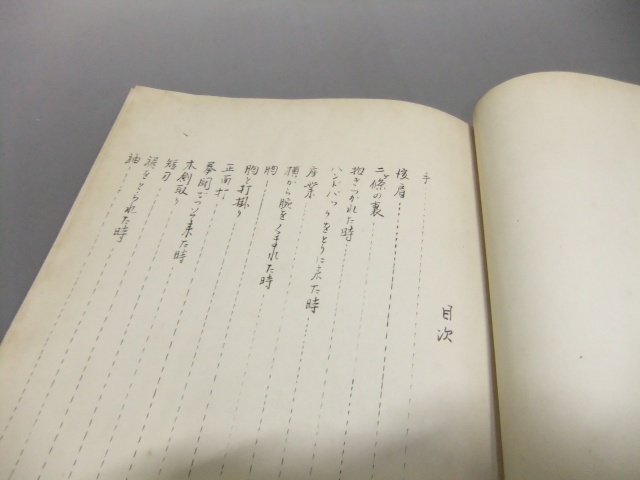 目次
手
後肩
二ヶ條の裏
抱きつかれた時
ハンドバックをとりに来た時
産業
横から腕をくまれた時
胸
胸と打掛り
正面打
拳闘でついて来た時
木剣取り
短刀
裾をとられた時
袖